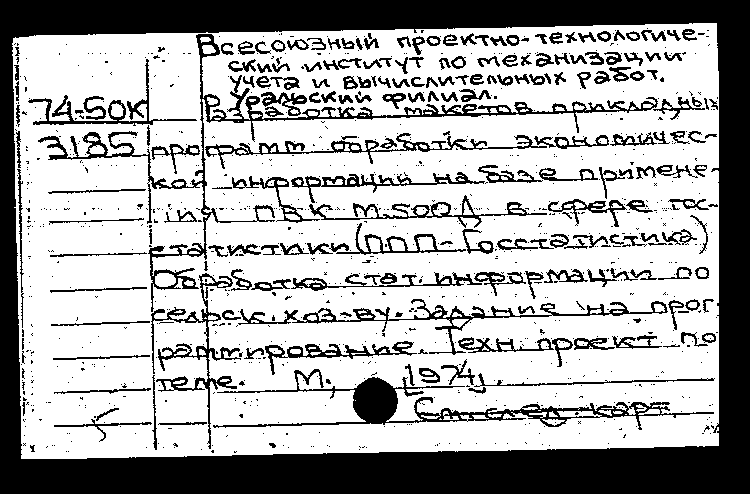 Всесоюзный проектно-технологиче-
ский институт по механизации
учета и вычислительных работ.
Уральский филиал.
74-50К
Разработка макетов прикладных
3185
программ обработки экономичес-
кой информации на базе примене-
ния ПВК М.500Д в сфере гос-
статистики (ППП-Госстатистика)
Обработка стат. информации по
сельск. хоз-ву. Задание на прог-
раммирование. Техн. проект по
теме. М., [1974].
См. след. карт.